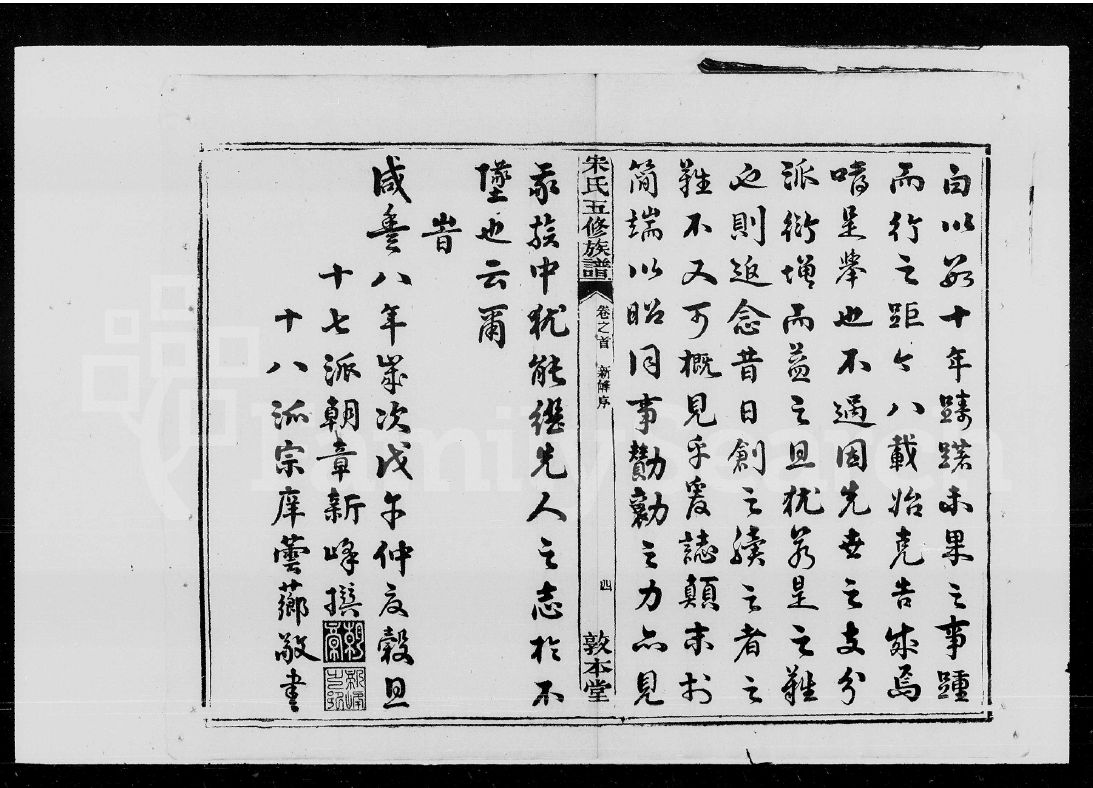 自以數十年躊躇未果之事踵
而行之距今八載始克告成焉
嘻是舉也不過因先世之支分
派衍增而益之且猶若是之難
也則追念昔日創之續之者之
難不又可概見乎爰誌顛末於
簡端以昭同事勷勷之力亦見
宋氏五修族譜 卷之首 新鐫序 四 敦本堂
我族中猶能繼先人之志於不
墜也云爾
旹
咸豐八年歲次戊午仲夏穀旦
十七派朝章新峰撰
十八派宗庠雲薌敬書
FamilySearch